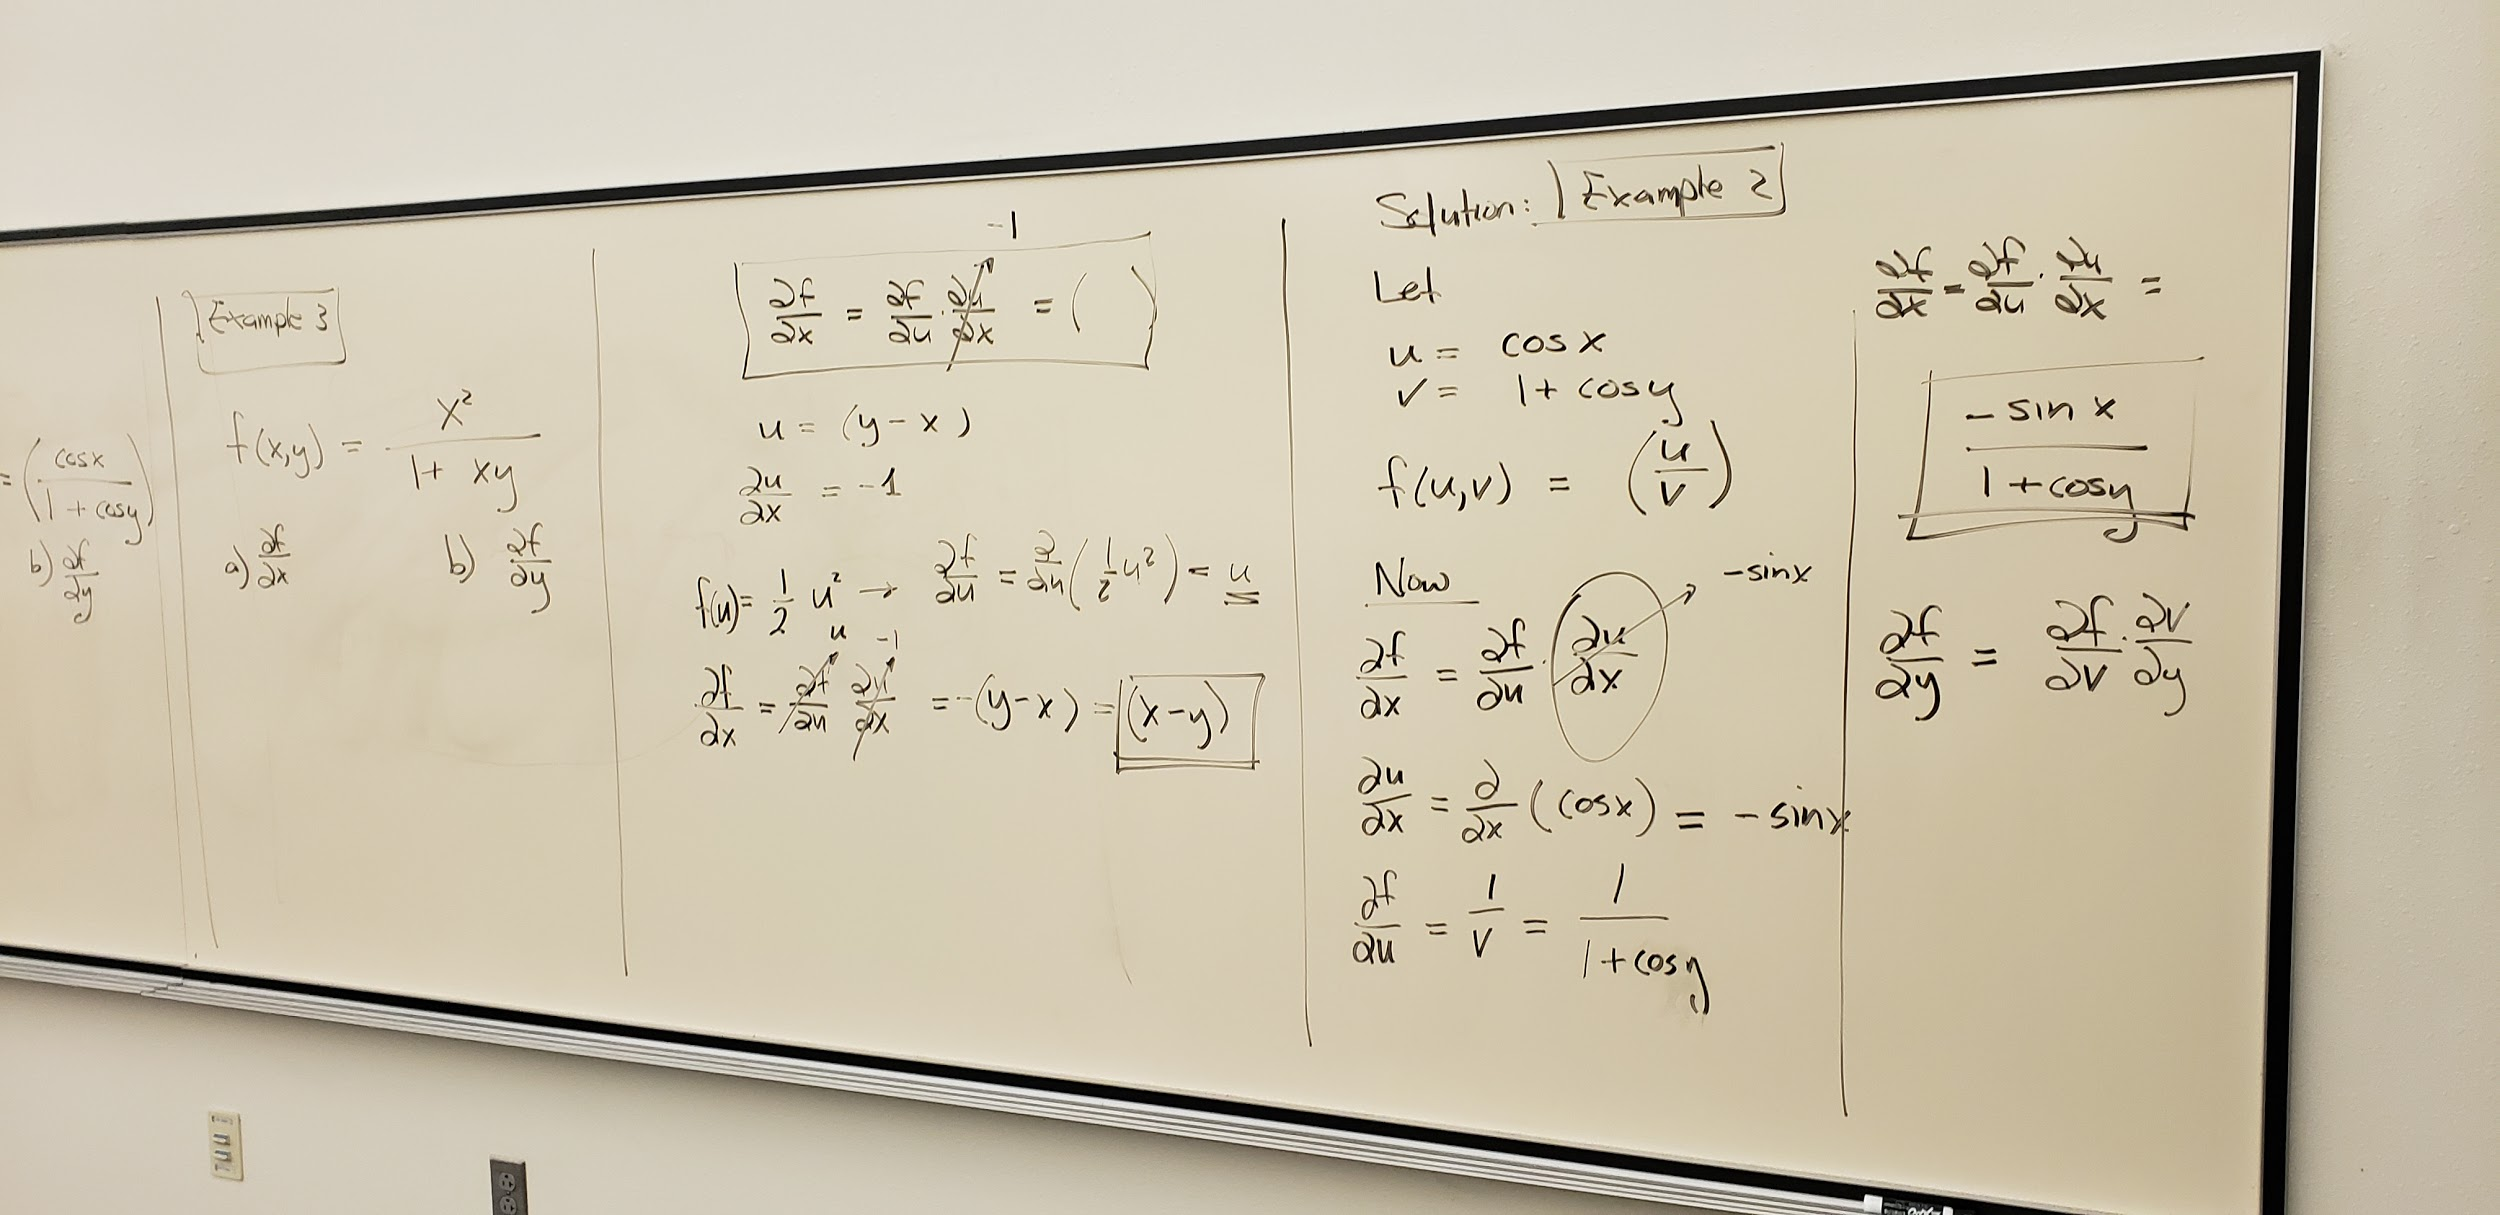 = (cosx / 1 + cosy)
b) ∂f/∂y
Example 3
f(x,y) = x² / 1+ xy
a) ∂f/∂x b) ∂f/∂y
-1
∂f/∂x = ∂f/∂u · ∂u/∂x = ( )
u = (y-x)
∂u/∂x = -1
f(u)= 1/2 u² → ∂f/∂u = ∂/∂u (1/2 u²) = u
u -1
∂f/∂x = ∂f/∂u ∂u/∂x = -(y-x) = (x-y)
Solution: Example 2
Let
u = cosx
v = 1+ cosy
f(u,v) = (u/v)
Now
-sinx
∂f/∂x = ∂f/∂u · ∂u/∂x
∂u/∂x = ∂/∂x (cosx) = -sinx
∂f/∂u = 1/v = 1 / 1+cosy
∂f/∂x = ∂f/∂u · ∂u/∂x =
-sin x / 1+cosy
∂f/∂y = ∂f/∂v · ∂v/∂y